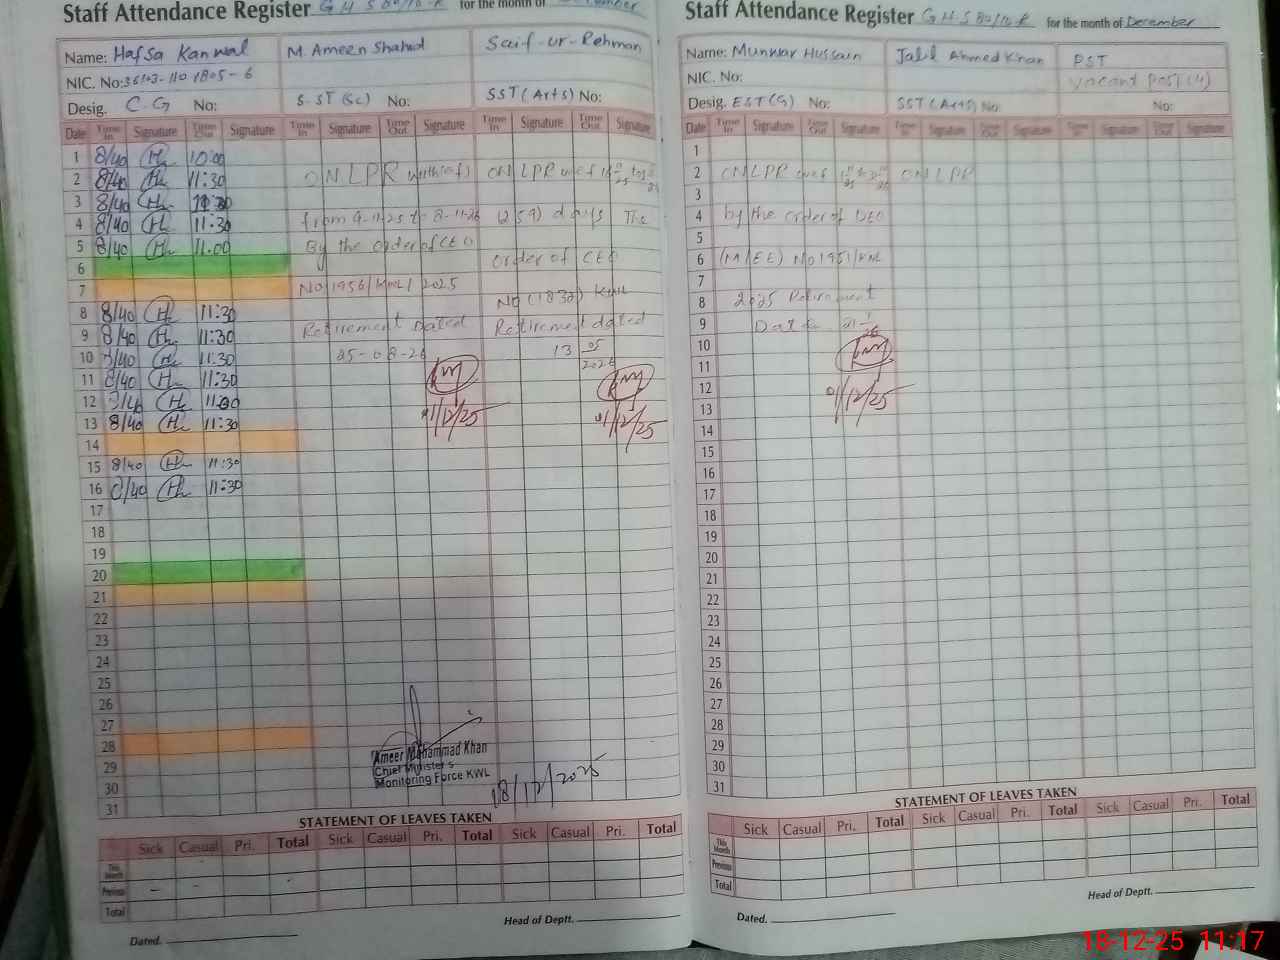 Staff Attendance Register G H S 80/10-R for the month of December
Name: Hafsa Kanwal M. Ameen Shahid Saif-ur-Rehman
NIC. No:
Desig. C.G No: S-ST (Sc) No: SST (Arts) No:
Date Time In Signature Time Out Signature Time In Signature Time Out Signature Time In Signature Time Out Signature
1 8/40 10:00
2 8/40 11:30 ON LPR ON LPR
3 8/40
4 8/40 11:30 from 9-11-25 to 8-11-26 (259) days The
5 8/40 11.00 By the order of CEO
6 order of CEO
7 No 1956/KWL/2025
8 8/40 11:30 No (1832) KWL
9 8/40 11:30 Retirement Dated Retirement dated
10 8/40 11:30 13 05 2026
11 8/40 11:30
12
13 8/40 11:30 01/12/25 01/12/25
14
15 8/40 11:30
16 8/40 11:30
17
18
19
20
21
22
23
24
25
26
27
28
29
30
31
Ameer Muhammad Khan
Chief Minister's
Monitoring Force KWL
18/12/2025
STATEMENT OF LEAVES TAKEN
Sick Casual Pri. Total Sick Casual Pri. Total
This Month
Previous
Total
Head of Deptt.
Dated.
Staff Attendance Register G H S 80/10-R for the month of December
Name: Munwar Hussain Jalil Ahmed Khan PST
NIC. No: Vacant Post (4)
Desig. EST (G) No: SST (Arts) No: No:
Date Time In Signature Time Out Signature Time In Signature Time Out Signature Time In Signature Time Out Signature
1
2 ON LPR ON LPR
3
4 by the order of DEO
5
6 (M/EE) No 1951/KWL
7
8 2025 Retirement
9 Date
10
11
12 01/12/25
13
14
15
16
17
18
19
20
21
22
23
24
25
26
27
28
29
30
31
STATEMENT OF LEAVES TAKEN
Sick Casual Pri. Total Sick Casual Pri. Total
This Month
Previous
Total
Head of Deptt.
Dated.
18-12-25 11:17